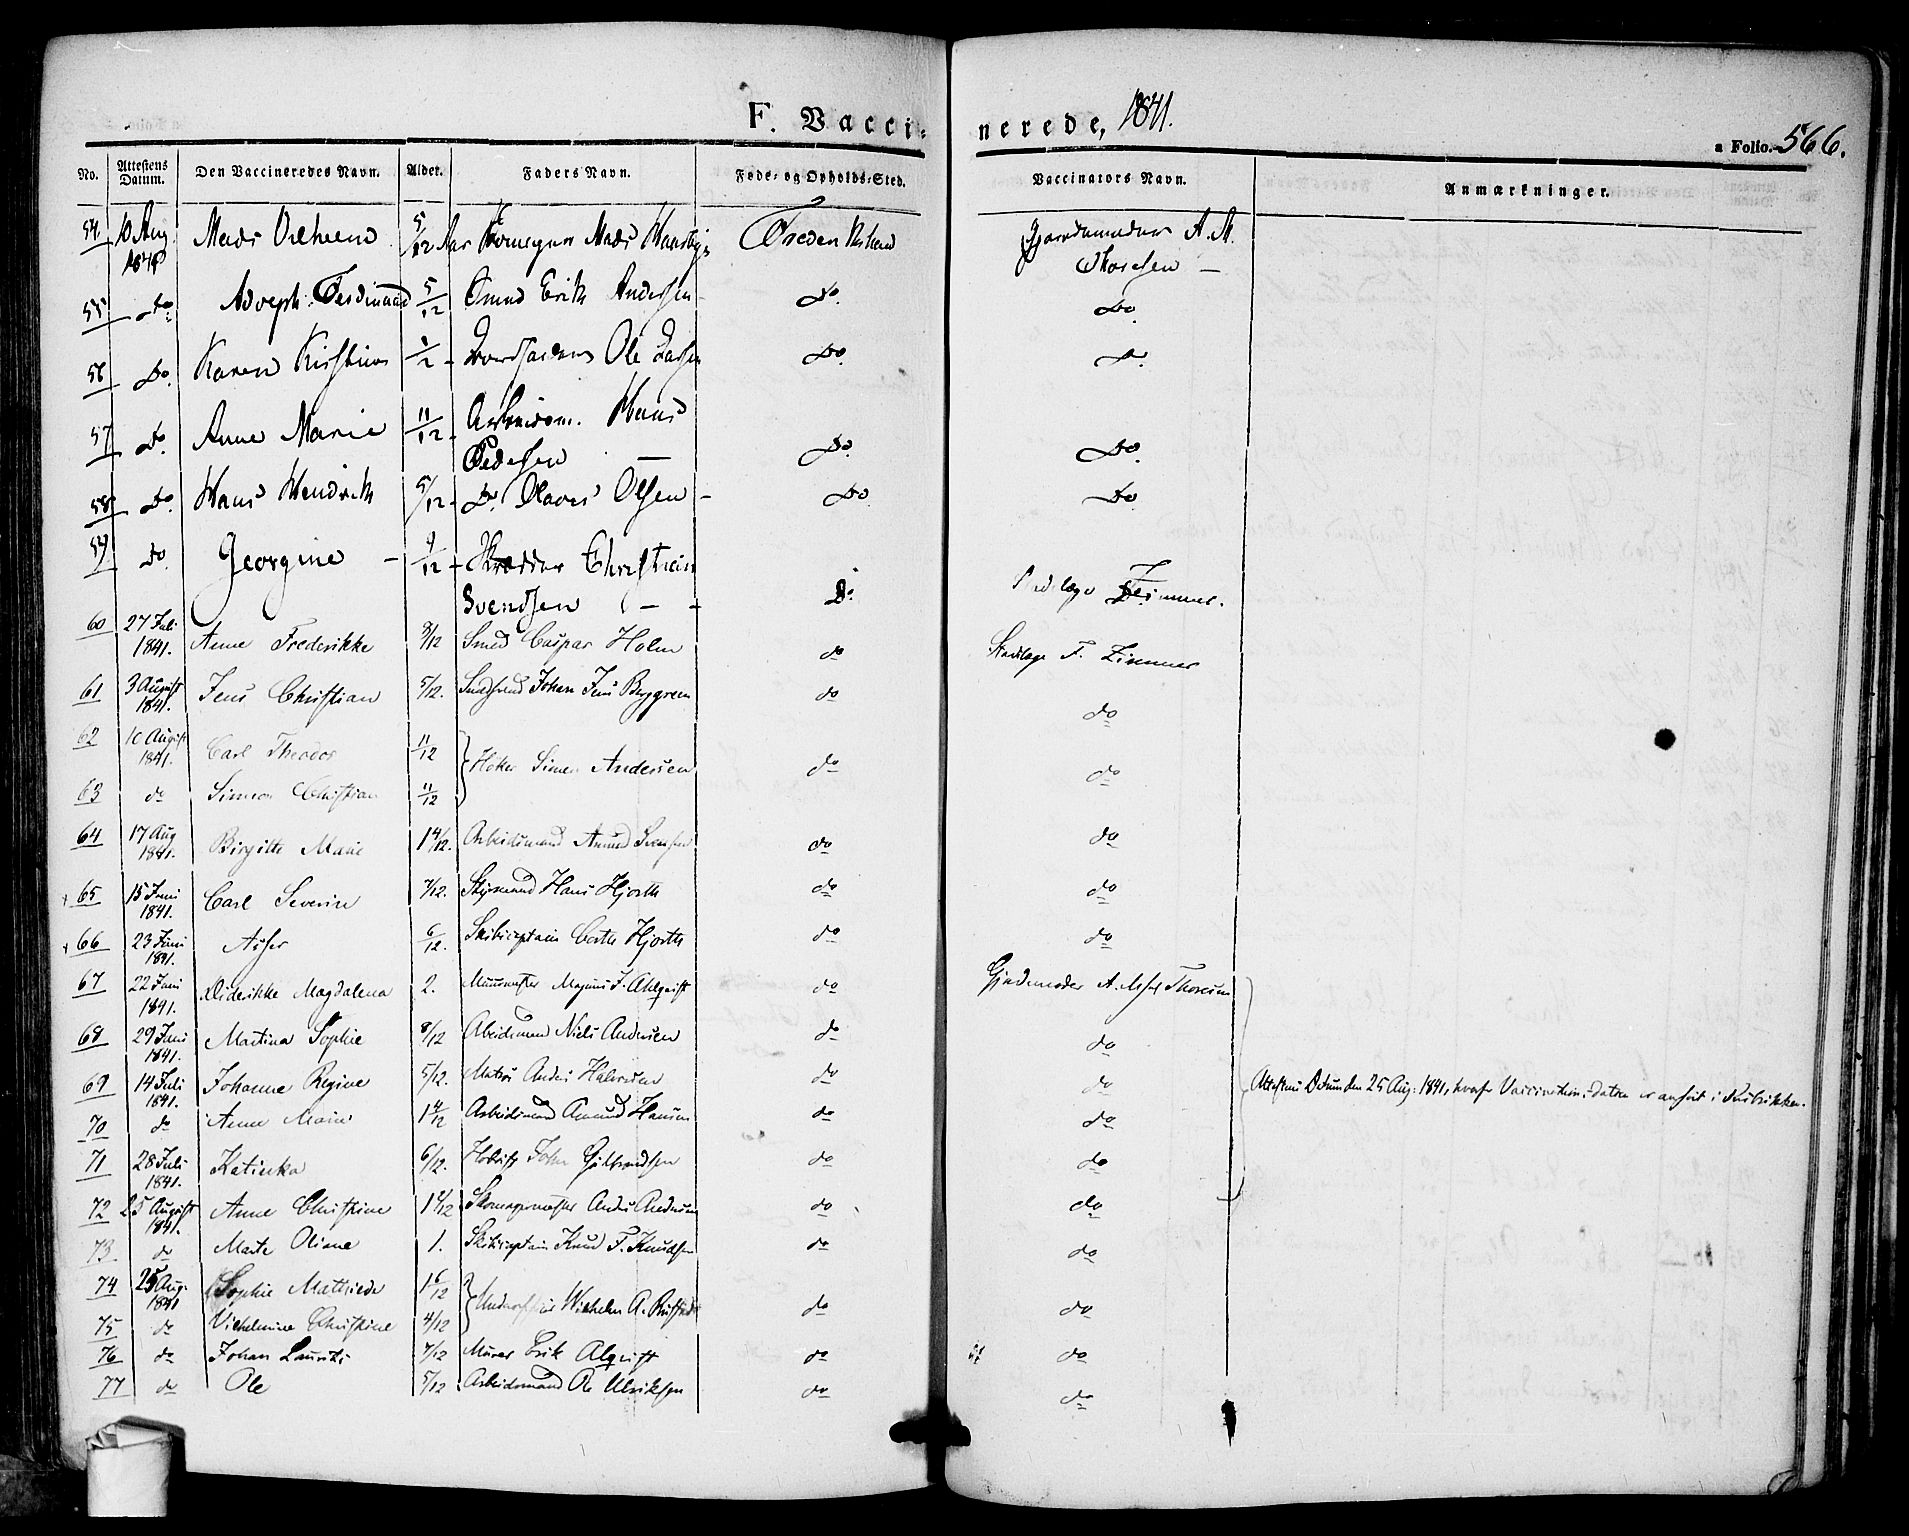 F. Vaccinerede, 1841.
a Folio. 566.
No. Attestens Datum. Den Vaccineredes Navn. Alder. Faders Navn. Føde- og Opholds-Sted. Vaccinators Navn. Anmærkninger.
54 10 Aug 1841 Mads 5/12 Aar Mads Gjordemoder A. M.
Thoresen
55 Do Adolph Ferdinand 5/12 Smed Erik Andersen Do. Do
56 Do. Karen Kirstine 1/2 Ole Do. Do.
57 Do. Anne Marie 11/12 Arbeidsm. Hans
Pedersen Do. Do.
58 Do. Hans Hendrik 5/12 Do. Olaves Olsen Do. Do
59 Do. Georgine 9/12 Skræder Christian
Svendsen Do. Stadslæge Zimmer.
60 27 Juli 1841. Anne Frederikke 8/12 Smed Caspar Holm do Stadslæge F. Zimmer
61 3 August 1841. Jens Christian 5/12. Johan Jens Berggreen do do
62 10 August 1841. Carl Theodor 11/12 Høker Simen Andersen do do
63 do Simon Christian 11/12
64 17 Aug 1841. Birgitte Marie 1 4/12. Arbeidsmand Amund do do
65 15 Juni 1841. Carl Severin 7/12. Styrmand Hans Hjorth do do
66 23 Juni 1841. Asser 6/12. Skibscaptain Hjorth do do
67 22 Juni 1841. Diderikke Magdalena 2. Muurmester Magnus F. Ahlqvist do Gjordemoder A. M. Thoresen
68 29 Juni 1841. Martina Sophie 8/12 Arbeidsmand Niels Andersen do do
69 14 Juli 1841. Johanne Regine 5/12. Matros Anders Halvorsen do do Attestens Datum den 25 Aug: 1841, hvorfor Vaccinations-Datoen er anført i Rubrikken.
70 do Anne Marie 1 4/12 Arbeidsmand Amund Hansen do do
71 28 Juli 1841. Katinka 6/12. John do do
72 25 August 1841. Anne Christine 1 4/12 Skomagermester Anders Andersen do do
73 do Marte Oliane 1. Skibscaptain Knud F. Knudsen do do
74 25 Aug. 1841 Sophie Mathilde 1 6/12 Wilhelm A. do do
75 do Vilhelmine Christine 4/12
76 do Johan Laurits 7/12 Murer Erik Alqvist do do
77 do Ole 5/12 Arbeidsmand Ole Ulriksen do do